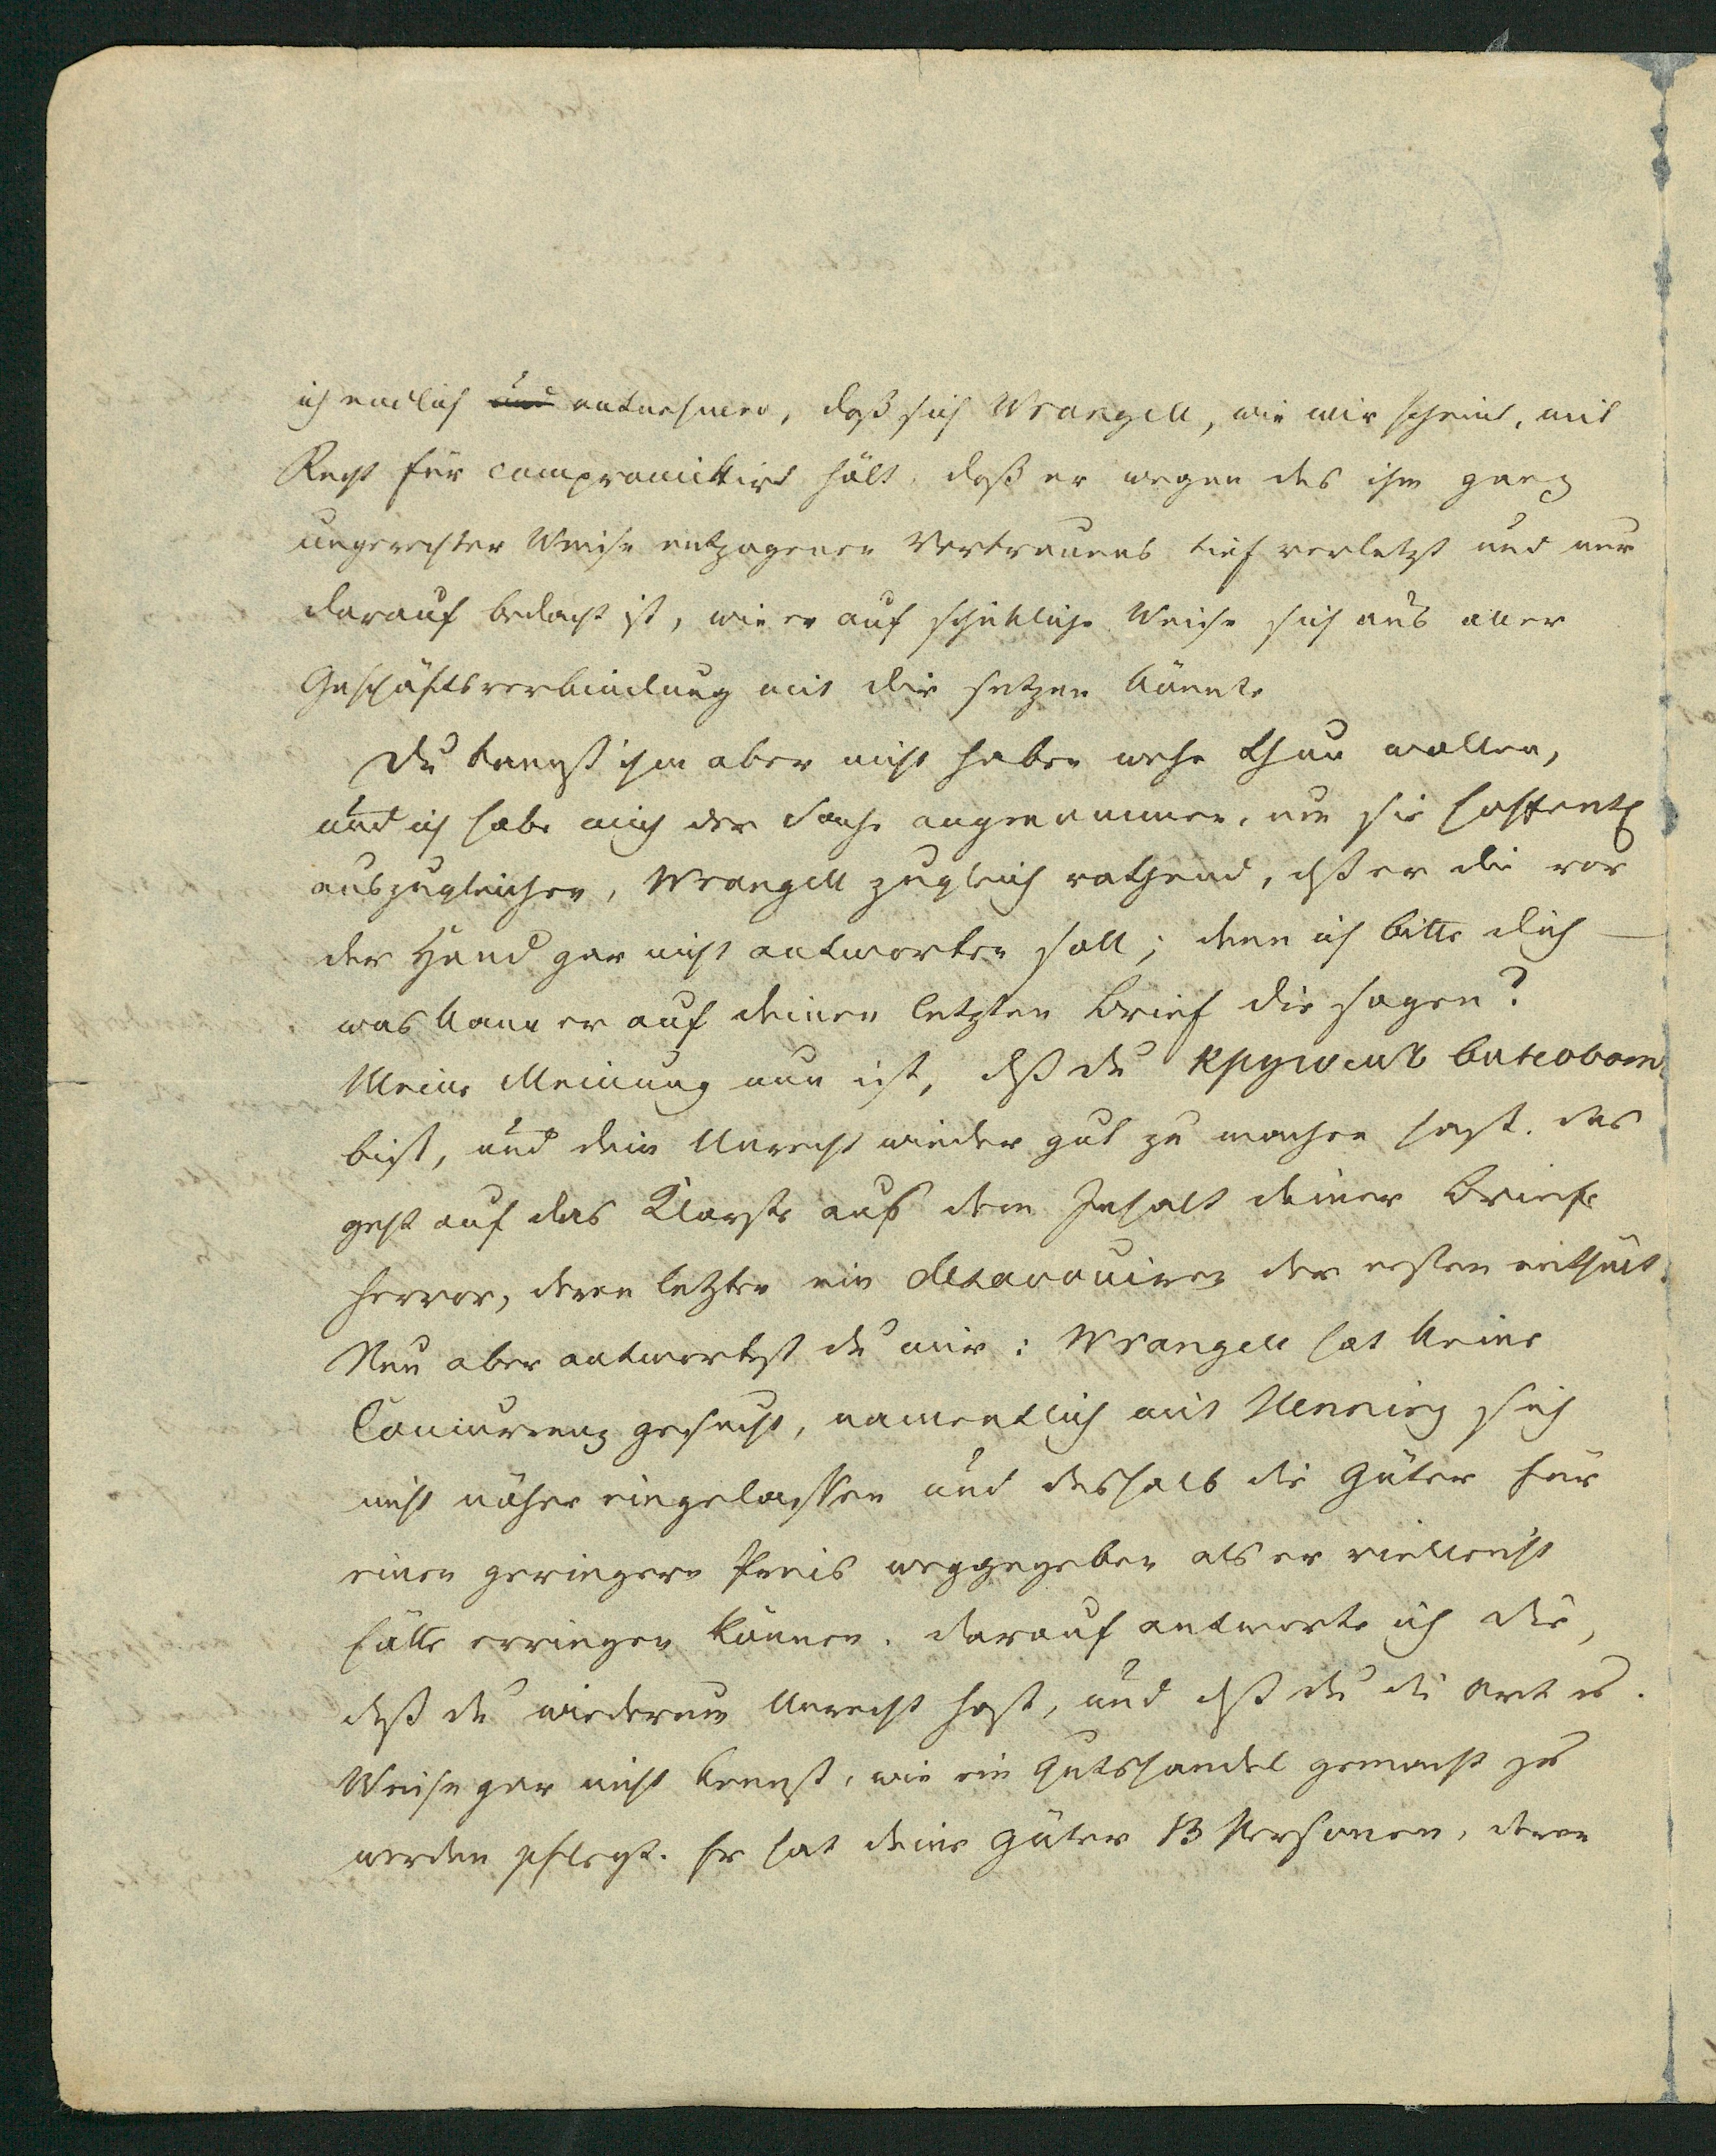 ich endlich und entnehmen, daß sich Wrangell, wie mir scheint, mit
Recht für compromittirt hält, daß er wegen des ihm ganz
ungerechter Weise entzogenen Vertrauens tief verletzt und nur
darauf bedacht ist, wie er auf schickliche Weise sich aus aller
Geschäftsverbindung mit dir setzen könnte
Du kannst ihm aber nicht haben wehe thun wollen,
und ich habe mich der Sache angenommen, um sie hoffentl
auszugleichen, Wrangell zugleich rathend, dß er dir vor
der Hand gar nicht antworten soll; denn ich bitte dich —
was kann er auf deinen letzten Brief dir sagen?
Meine Meinung nun ist, dß du кругомъ виноватъ
bist, und dein Unrecht wieder gut zu machen hast. das
geht auf das Klarste aus dem Inhalt deiner Briefe
hervor, deren letzter ein desavouiren der ersten enthält.
Nun aber antwortest du mir: Wrangell hat keine
Concurrenz gesucht, namentlich mit Henning sich
nicht näher eingelassen und deshalb die Güter für
einen geringern Preis weggegeben als er vielleicht
hätte erringen können. darauf antworte ich dir,
daß du wiederum Unrecht hast, und dß du die Art u.
Weise gar nicht kennst, wie ein Gutshandel gemacht zu
werden pflegt. Er hat deine Güter 13 Personen, deren